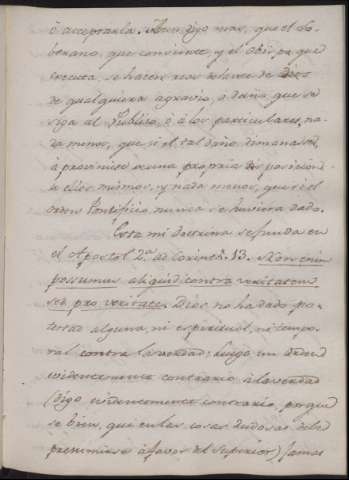 ó acceptarla. Aun digo mas, que el So-
berano, que consiente, y el Obispo que
executa, se hacen reos delante de Dios
de qualquiera agravio, ó daño, que se
siga al Publico, ó á los particulares, na-
da menos, que si el tal daño dimanase,
ó proviniese de una propria disposicion
de ellos mismos, y nada menos, que si el
orden Pontificio nunca se huviera dado.
Esta mi doctrina se funda en
el Apostol 2.ª ad Corinth. 13. Non enim
possumus aliquid contra veritatem
sed pro veritate. Dios no ha dado po-
testad alguna, ni espiritual, ni tempo-
ral contra la verdad: luego un orden
evidentemente contrario á la verdad
(digo evidentemente contrario, porque
se bien, que en las cosas dudosas debe
presumirse á favor del Superior) jamas